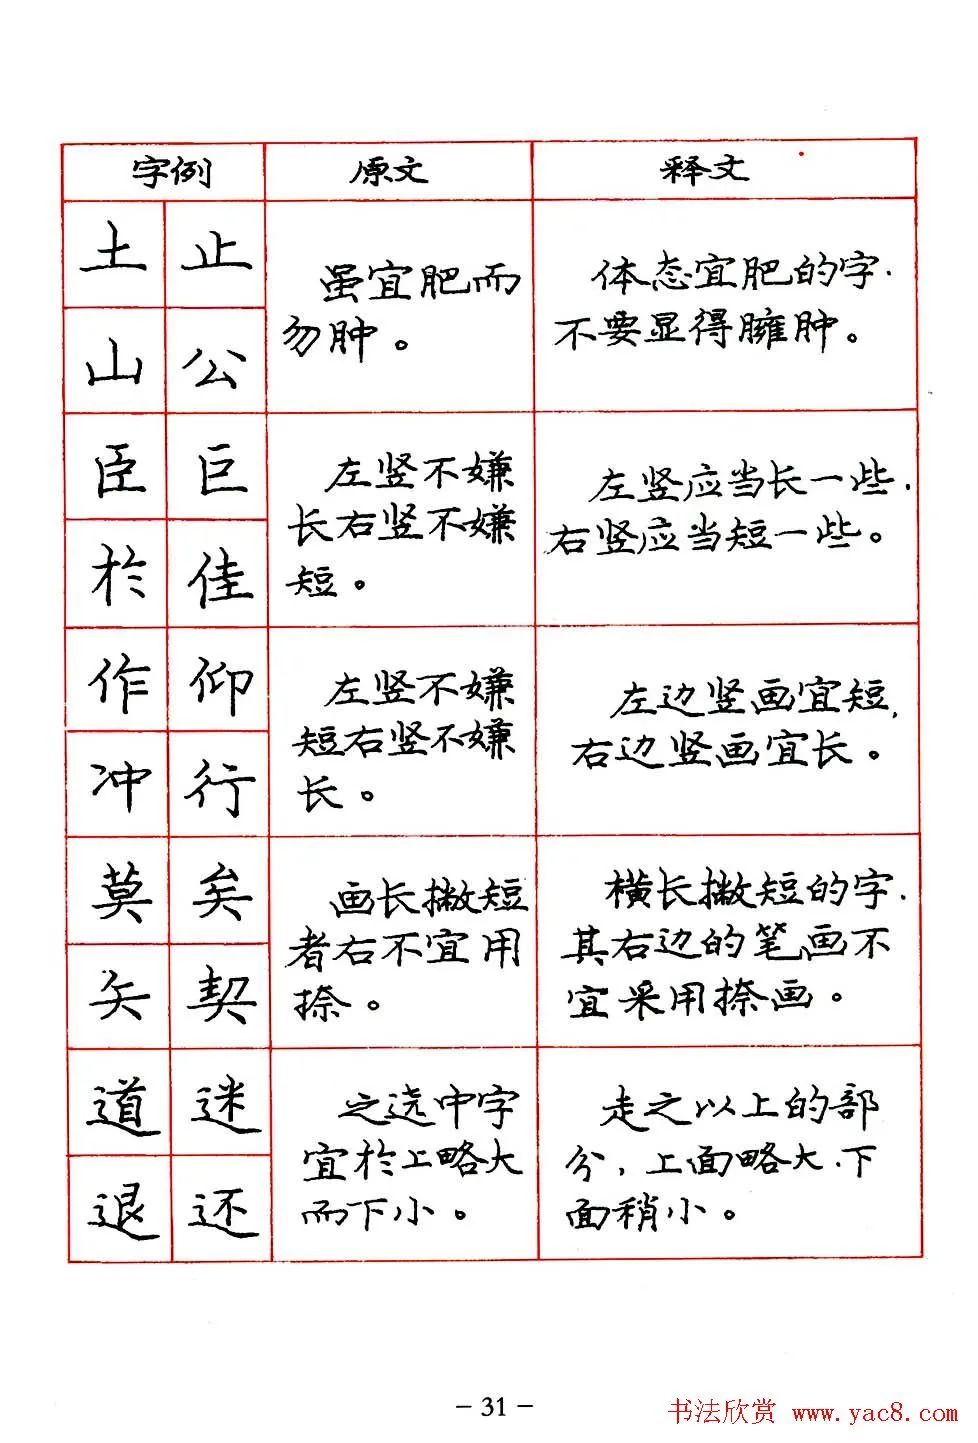 字例 原文 释文
土 止
山 公
虽宜肥而
勿肿。
体态宜肥的字.
不要显得臃肿。
臣 巨
於 佳
左竖不嫌
长右竖不嫌
短。
左竖应当长一些.
右竖应当短一些。
作 仰
冲 行
左竖不嫌
短右竖不嫌
长。
左边竖画宜短,
右边竖画宜长。
莫 矣
矢 契
画长撇短
者右不宜用
捺。
横长撇短的字.
其右边的笔画不
宜采用捺画。
道 迷
退 还
之选中字
宜於上略大
而下小。
走之以上的部
分,上面略大.下
面稍小。
- 31 -
书法欣赏 www.yac8.com